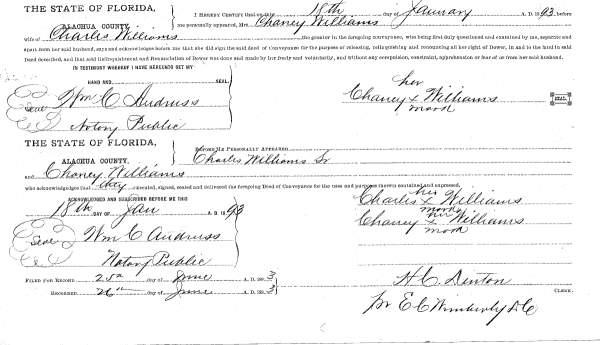 THE STATE OF FLORIDA,
ALACHUA COUNTY.
I HEREBY CERTIFY that on this 18th day of January A. D. 1893, before
me personally appeared, Mrs. Chaney Williams
wife of Charles Williams the grantor in the foregoing conveyance, who being first duly questioned and examined by me, separate and
apart from her said husband, says and acknowledges before me that she did sign the said deed of Conveyance for the purpose of releasing, relinquishing and renouncing all her right of Dower, in and to the land in said
Deed described, and that said Relinquishment and Renunciation of Dower was done and made by her freely and voluntarily, and without any compulsion, constraint, apprehension or fear of or from her said husband.
IN TESTIMONY WHEREOF I HAVE HEREUNTO SET MY
HAND AND SEAL.
Seal Wm C Andruss
Notory Public
her
Chaney x Williams SEAL.
mark
THE STATE OF FLORIDA,
ALACHUA COUNTY.
BEFORE ME PERSONALLY APPEARED
Charles Williams Sr
and Chaney Williams
who acknowledges that they executed, signed, sealed and delivered the foregoing Deed of Conveyance for the uses and purposes therein contained and expressed.
ACKNOWLEDGED AND SUBSCRIBED BEFORE ME THIS
18th DAY OF Jan A. D. 1893
Seal Wm C Andruss
Notory Public
his
Charles x Williams
mark
Chaney x Williams
mark
FILED FOR RECORD 25th day of June A. D. 1893
RECORDED 26th day of June A. D. 1893
H. C. Denton
CLERK.
pr E C Wimberly D C